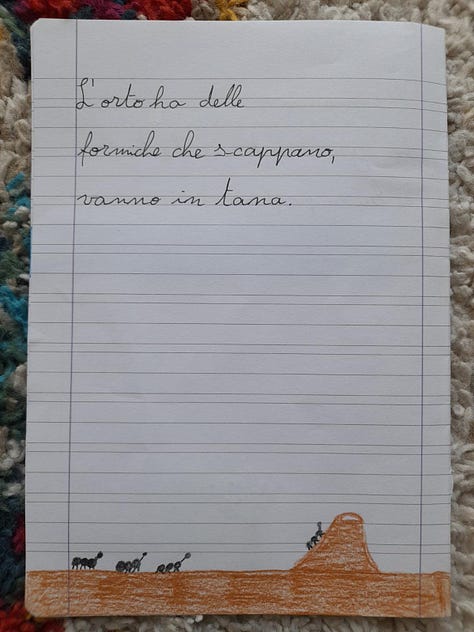 L'orto ha delle
formiche che scappano,
vanno in tana.